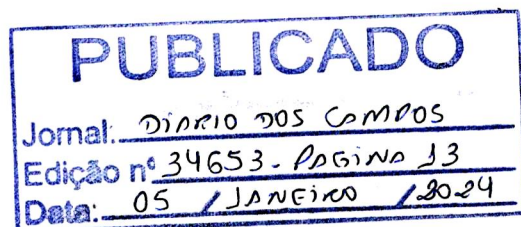 PUBLICADO
Jornal: DIARIO DOS CAMPOS
Edição nº 34653 - PAGINA 13
Data: 05 / JANEIRO / 2024